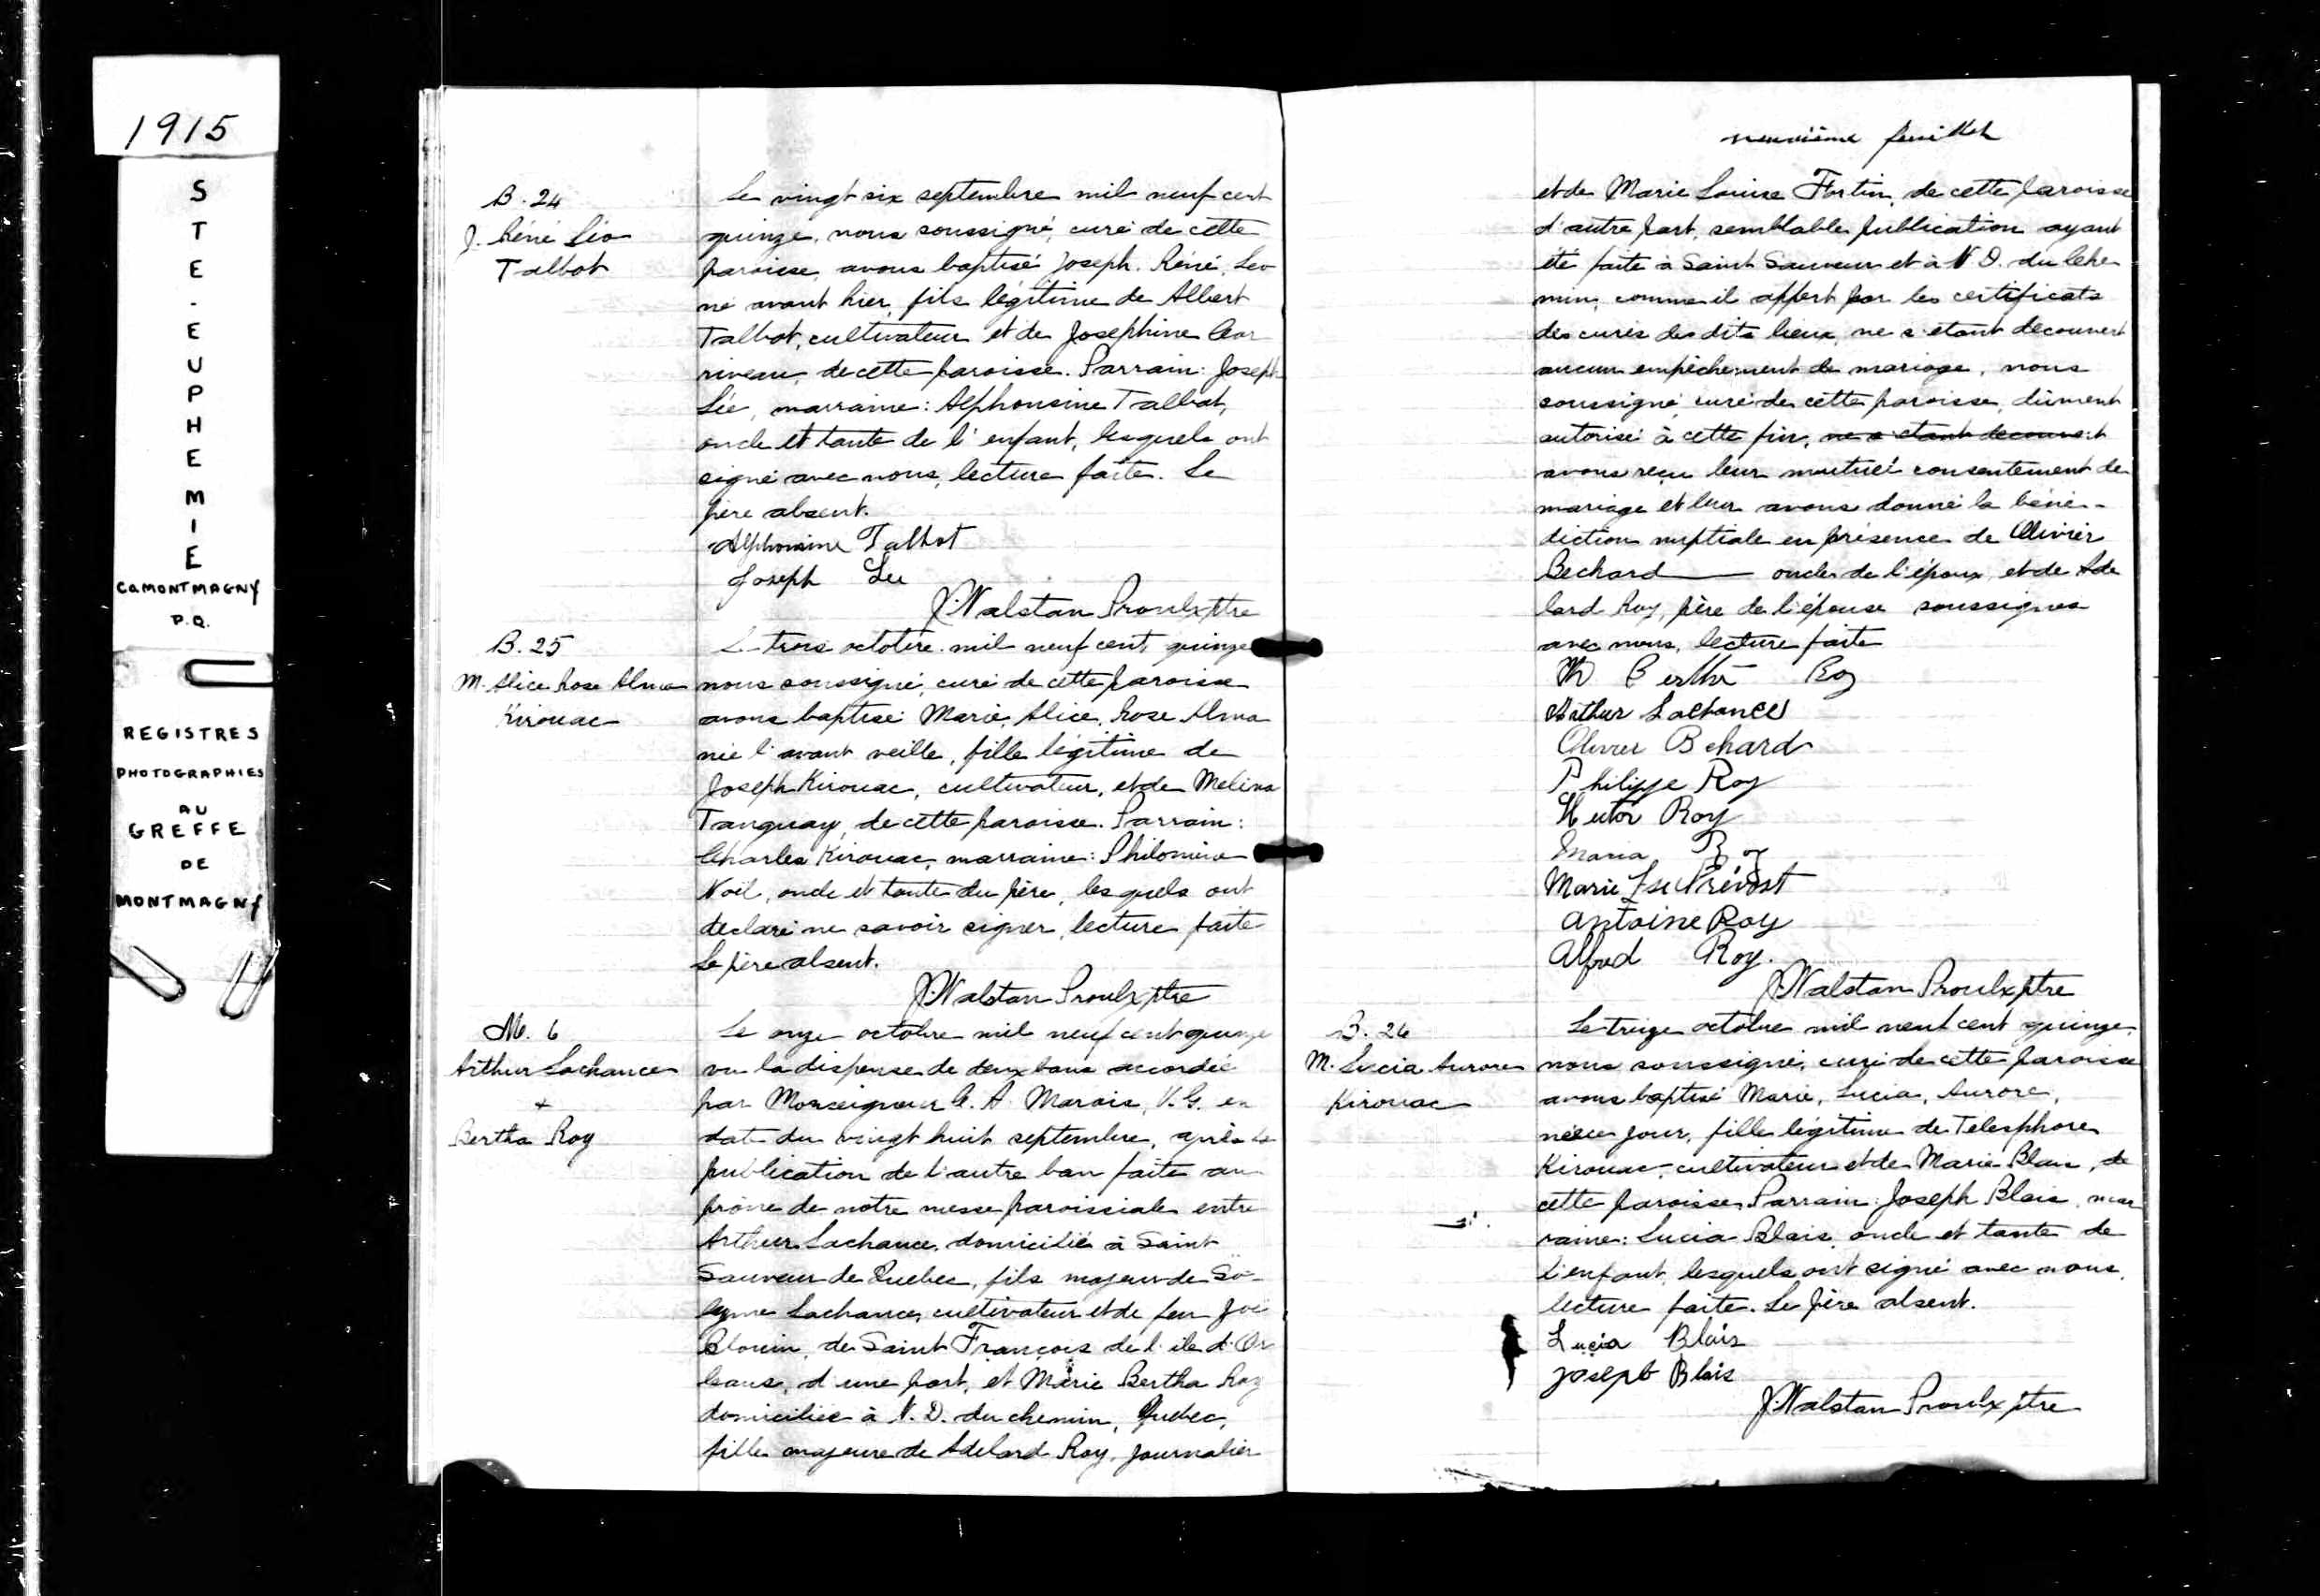 1915
STE-EUPHEMIE
CO MONTMAGNY
P.Q.
REGISTRES
PHOTOGRAPHIES
AU
GREFFE
DE
MONTMAGNY
B. 24
J. Réné Léo
Talbot
Le vingt six septembre mil neuf cent
quinze, nous soussigné, curé de cette
paroisse, avons baptisé Joseph, Réné, Léo
né avant hier, fils légitime de Albert
Talbot, cultivateur et de Josephine Cor
riveau, de cette paroisse. Parrain: Joseph
Lée, marraine: Alphonsine Talbot,
oncle et tante de l'enfant, lesquels ont
signé avec nous, lecture faite. Le
père absent.
Alphonsine Talbot
Joseph Lee
J. Walstan Proulx ptre
B. 25
M. Alice Rose Alma
Kirouac
Le trois octobre mil neuf cent quinze
nous soussigné, curé de cette paroisse
avons baptisé Marie, Alice, Rose Alma
née l'avant veille, fille légitime de
Joseph Kirouac, cultivateur, et de Melina
Tanguay, de cette paroisse. Parrain:
Charles Kirouac, marraine: Philomène
Noël, oncle et tante du père, lesquels ont
declaré ne savoir signer, lecture faite
Le père absent.
J. Walstan Proulx ptre
M. 6
Arthur Lachance
+
Bertha Roy
Le onze octobre mil neuf cent quinze
vu la dispense de deux bans accordée
par Monseigneur C. A. Marois, V. G. en
date du vingt huit septembre, après la
publication de l'autre ban faite au
prône de notre messe paroissiale entre
Arthur Lachance, domicilié à Saint
Sauveur de Quebec, fils majeur de So-
lyme Lachance, cultivateur et de feu Joé
Blouin, de Saint François de l'ile d'Or
leans, d'une part, et Marie Bertha Roy
domiciliée à N. D. du chemin, Quebec,
fille majeure de Adelard Roy, journalier
neuvième feuillet
et de Marie Louise Fortin, de cette paroisse
d'autre part, semblable publication ayant
été faite à Saint Sauveur et à N. D. du Che
min, comme il appert par les certificats
des curés des dits lieux, ne s'étant decouvert
aucun empêchement de mariage, nous
soussigné, curé de cette paroisse, dûment
autorisé à cette fin, ne s'étant decouvert
avons reçu leur mutuel consentement de
mariage et leur avons donné la béné-
diction nuptiale en présence de Olivier
Bechard oncle de l'époux et de Ade
lard Roy, père de l'épouse soussignés
avec nous, lecture faite
M Berthe Roy
Arthur Lachance
Olivier Bchard
Philippe Roy
Hector Roy
Maria Roy
Marie Lse Prévost
Antoine Roy
Alfred Roy.
J. Walstan Proulx ptre
B. 26
M. Lucia Aurore
Kirouac
Le treize octobre mil neuf cent quinze,
nous soussigné, curé de cette paroisse
avons baptisé Marie, Lucia, Aurore,
née ce jour, fille légitime de Telesphore
Kirouac, cultivateur et de Marie Blais, de
cette paroisse Parrain: Joseph Blais, mar
raine: Lucia Blais, oncle et tante de
l'enfant, lesquels ont signé avec nous,
lecture faite. Le père absent.
Lucia Blais
Joseph Blais
J. Walstan Proulx ptre